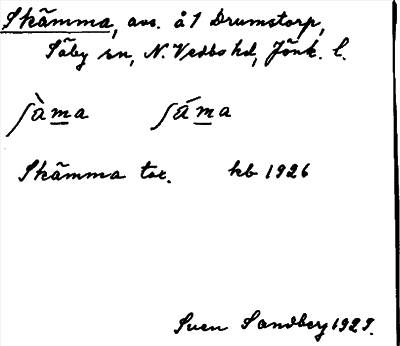 Skämma, avs. å 1 Drumstorp,
Säby sn, N. Vedbo hd, Jönk. l.
ʃàma ʃáma
Skämma tor. kb 1926
Sven Sandberg 1929.